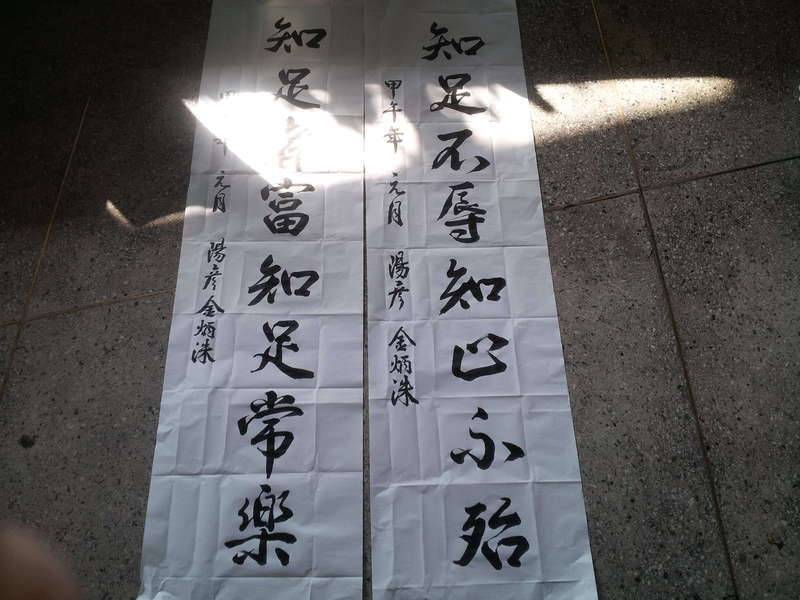 知足不辱知止不殆
甲午年 元月 湯彦 金炳洙
知足者富知足常樂
甲午年 元月 湯彦 金炳洙